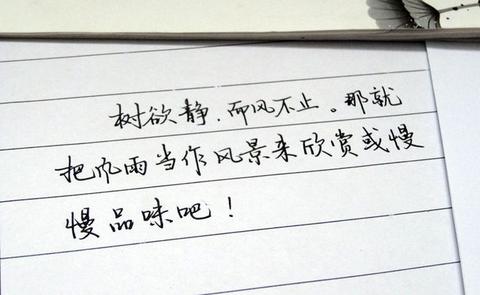 树欲静，而风不止。那就
把风雨当作风景来欣赏或慢
慢品味吧！